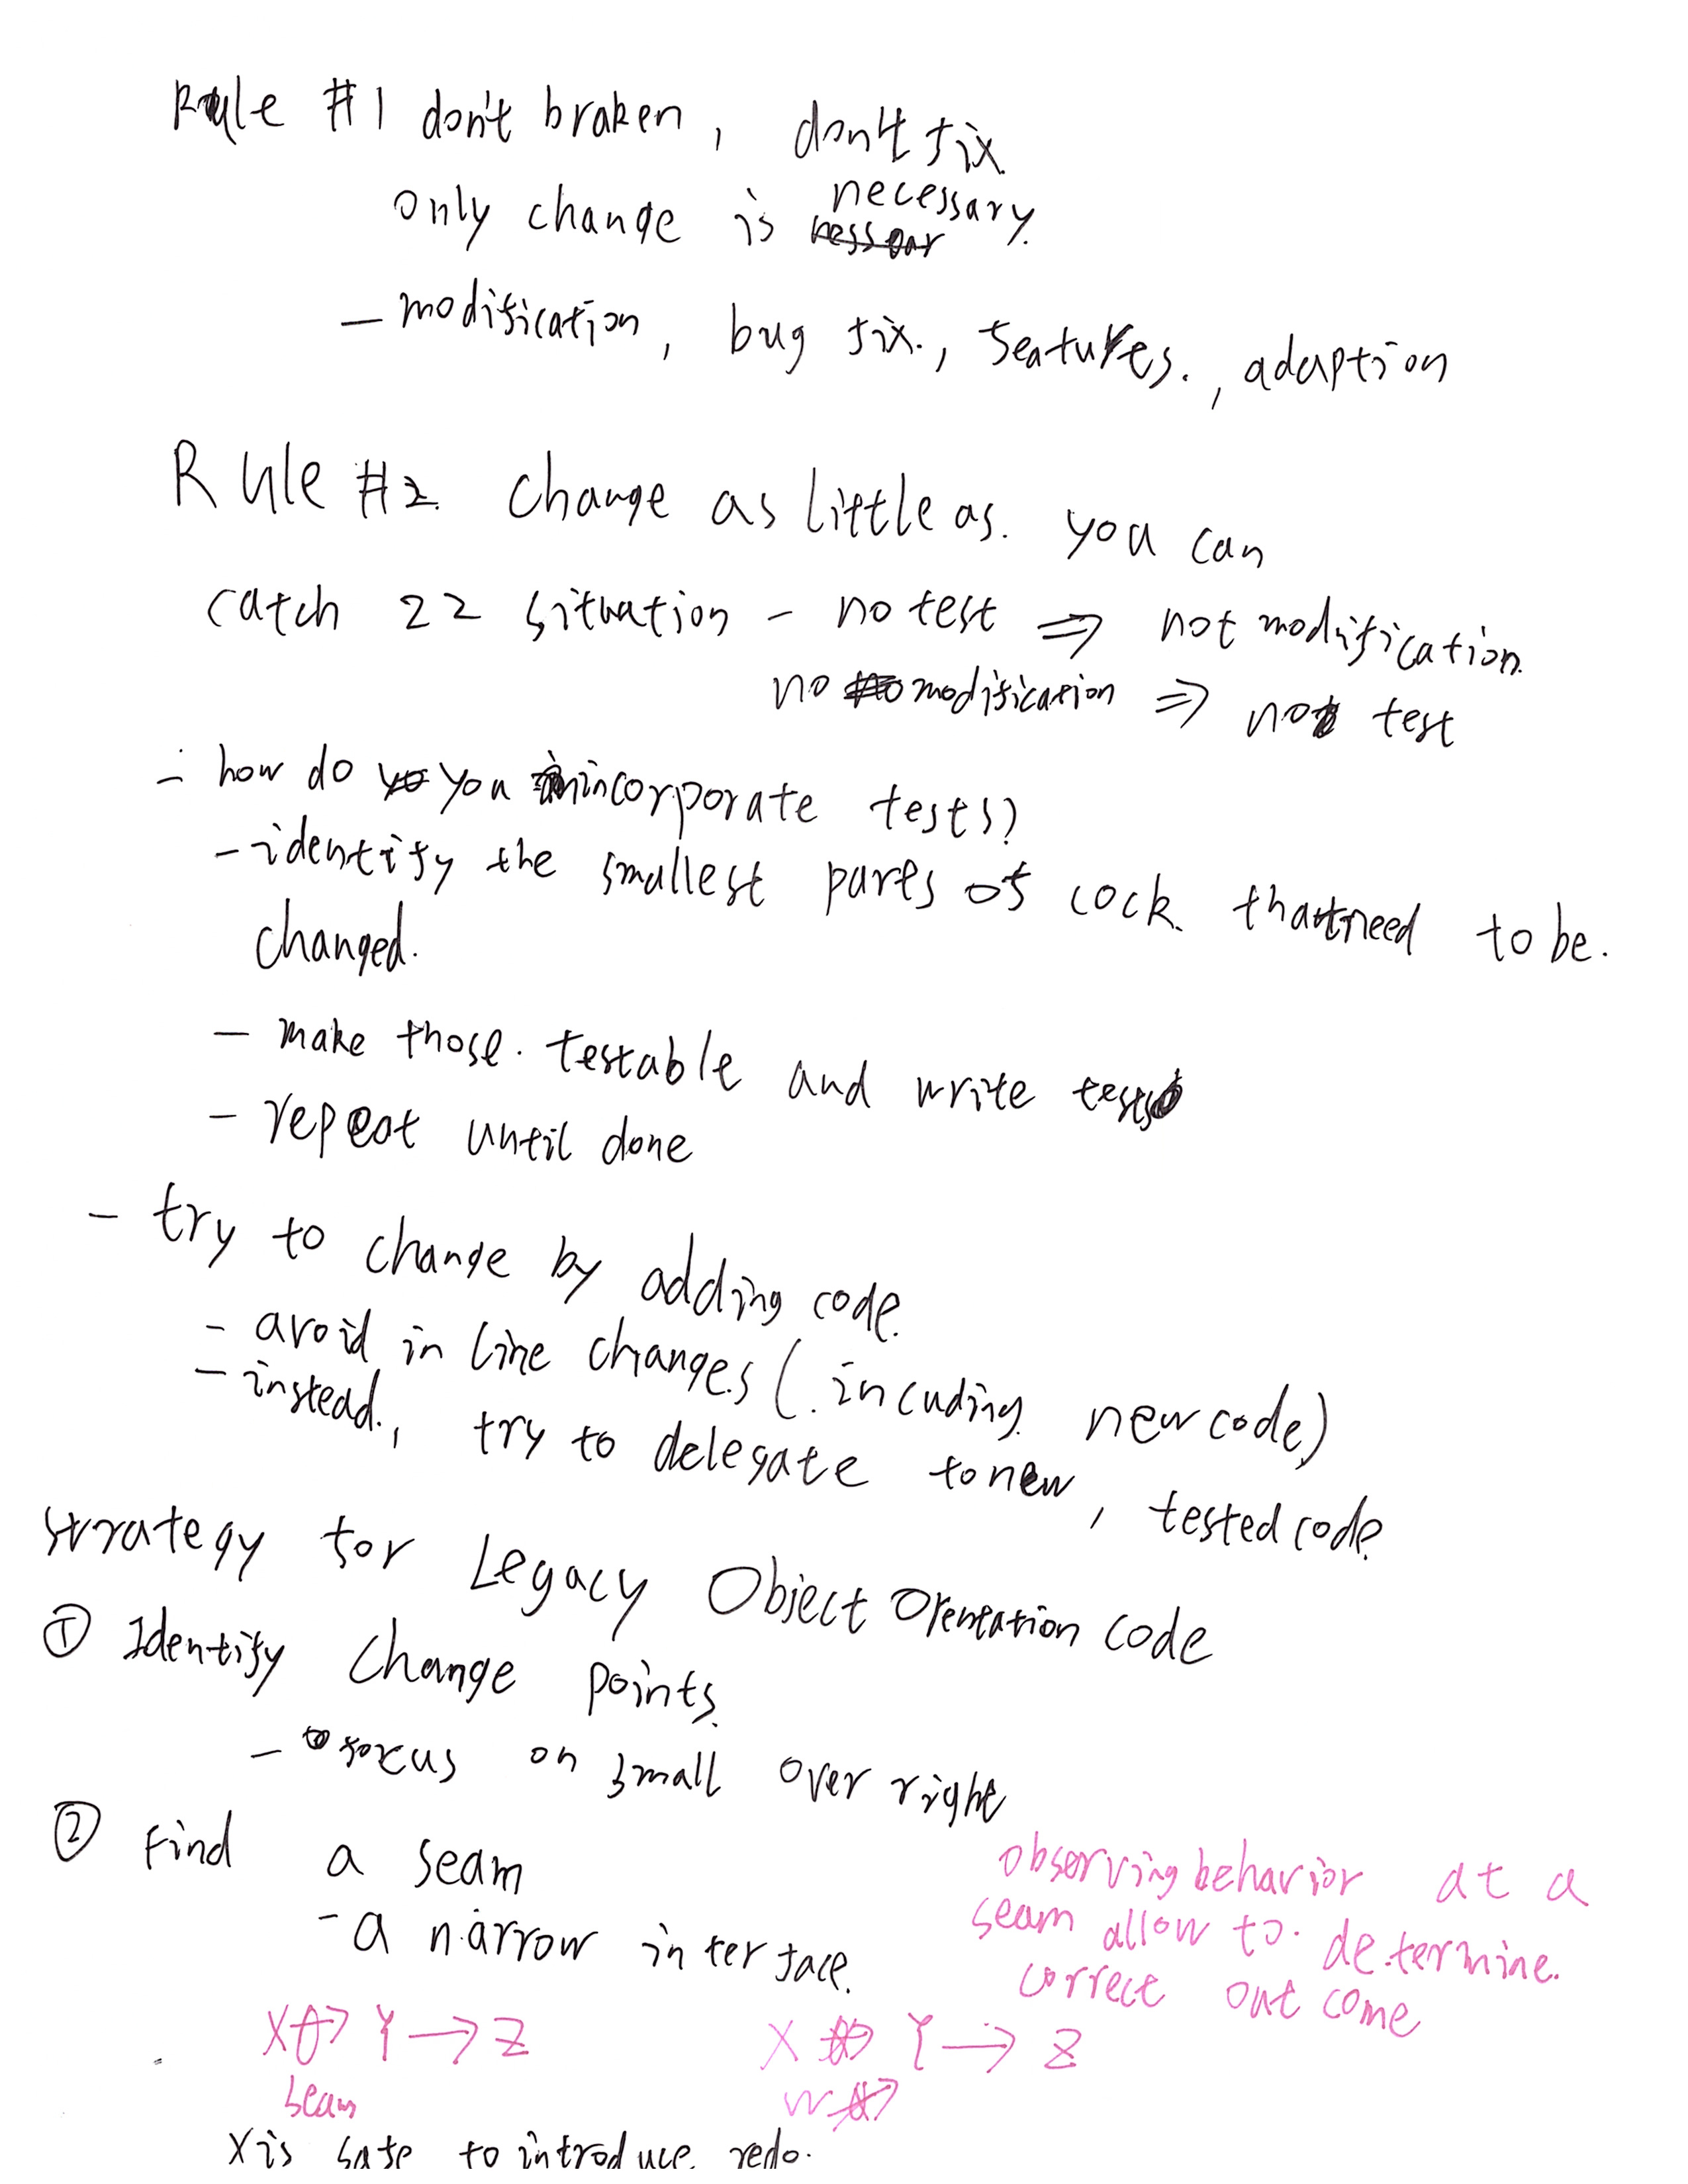 Rule #1 don't braken, don't fix
only change is necessary.
- modification, bug fix., features., adaption
Rule #2. Change as little as. you can
catch 22 situation - no test ⇒ not modification.
no modification ⇒ not test
- how do you incorporate tests?
- identify the smallest parts of cock. that need to be.
changed.
- make those. testable and write tests
- repeat until done
- try to change by adding code.
- avoid in line changes (. incuding new code)
- instead., try to delegate to new, tested code
strategy for Legacy Object Orentation code
① Identify Change points.
- focus on small over right
② Find a seam
- a narrow interface.
observing behavior at a
seam allow to. determine.
correct out come
X → Y → Z
seam
X Y → Z
W
X is safe to introduce redo.